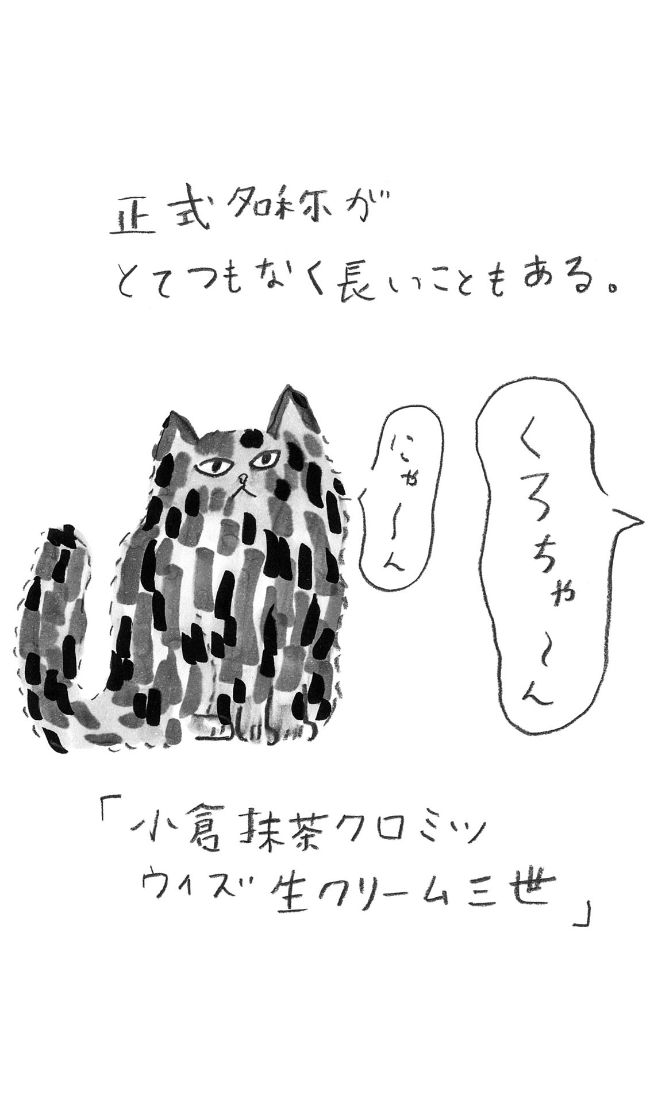 正式名称が
とてつもなく長いこともある。
くろちゃ〜ん
にゃ〜ん
「小倉抹茶クロミツ
ウィズ生クリーム三世」